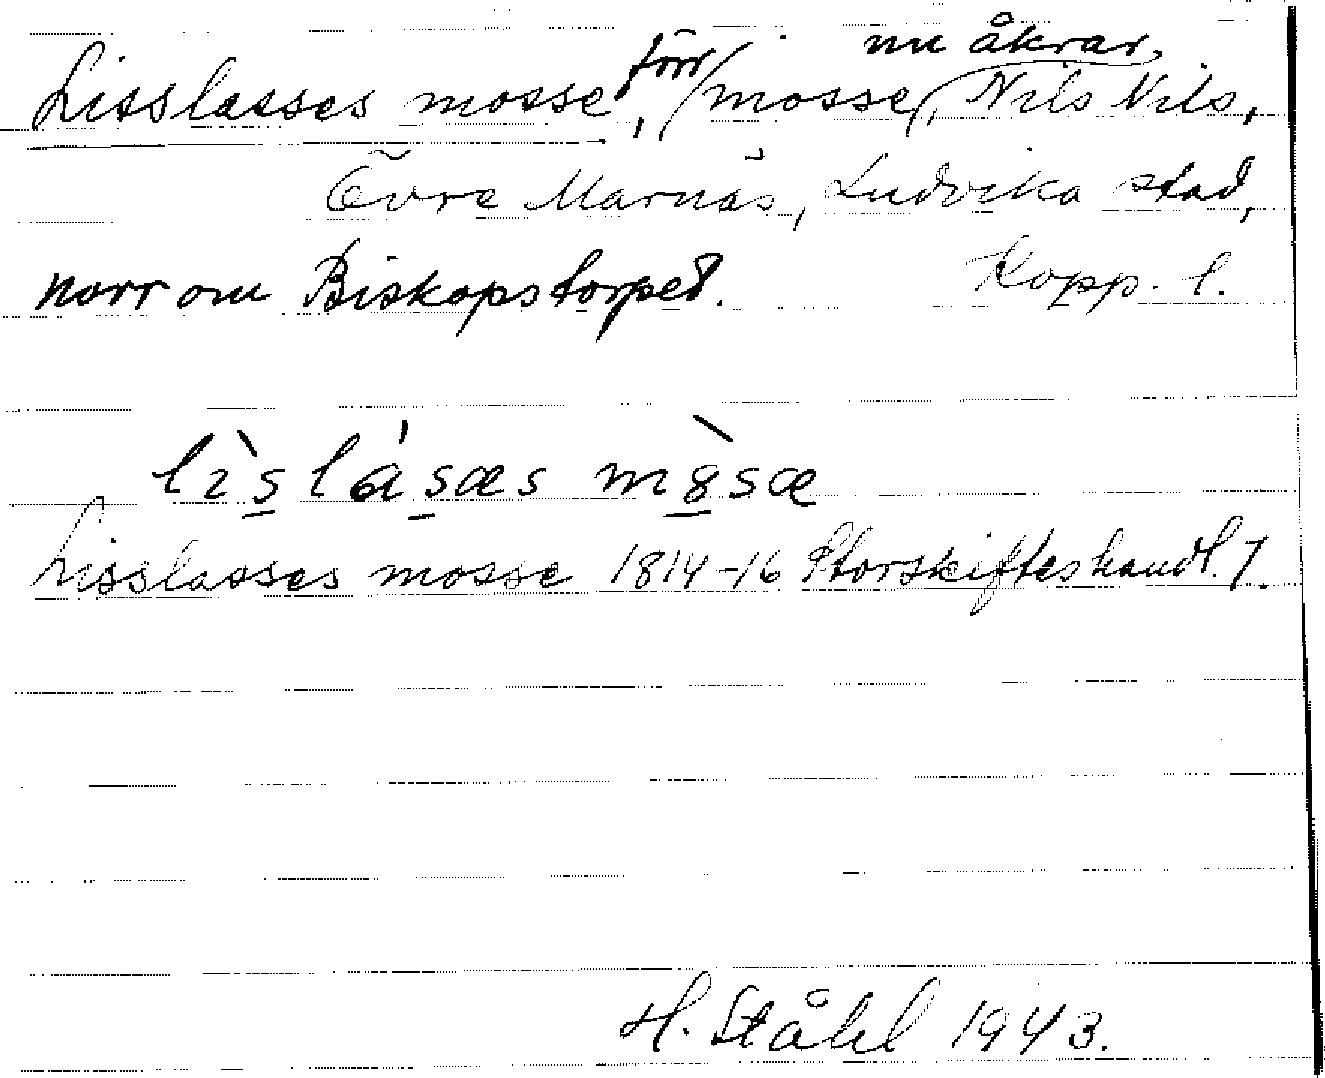 Lisslasses mosse, förr mosse, nu åkrar, Nils Nils,
Övre Marnäs, Ludvika stad,
norr om Biskopstorpet. Kopp. l.
lìslásæs mòsæ
Lisslasses mosse 1814-16 Storskifteshandl. 7.
H. Ståhl 1943.